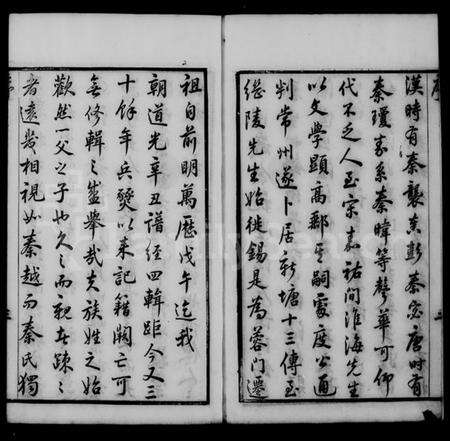 漢時有秦襲秦彭秦宓唐時有
秦瓊秦系秦暐等聲華可仰
代不乏人至宋嘉祐間淮海先生
以文學顯高郵其嗣處度公通
判常州遂卜居新塘十三傳至
繼陵先生始徙錫是為蓉門遷
祖自前明萬歷戊午迄我
朝道光辛丑譜經四輯距今又三
十餘年兵燹以來記籍闕亡可
無修輯之盛舉哉夫族姓之始
歡然一父之子也久之而親者疎疎
者遠出相視如秦越而秦氏獨